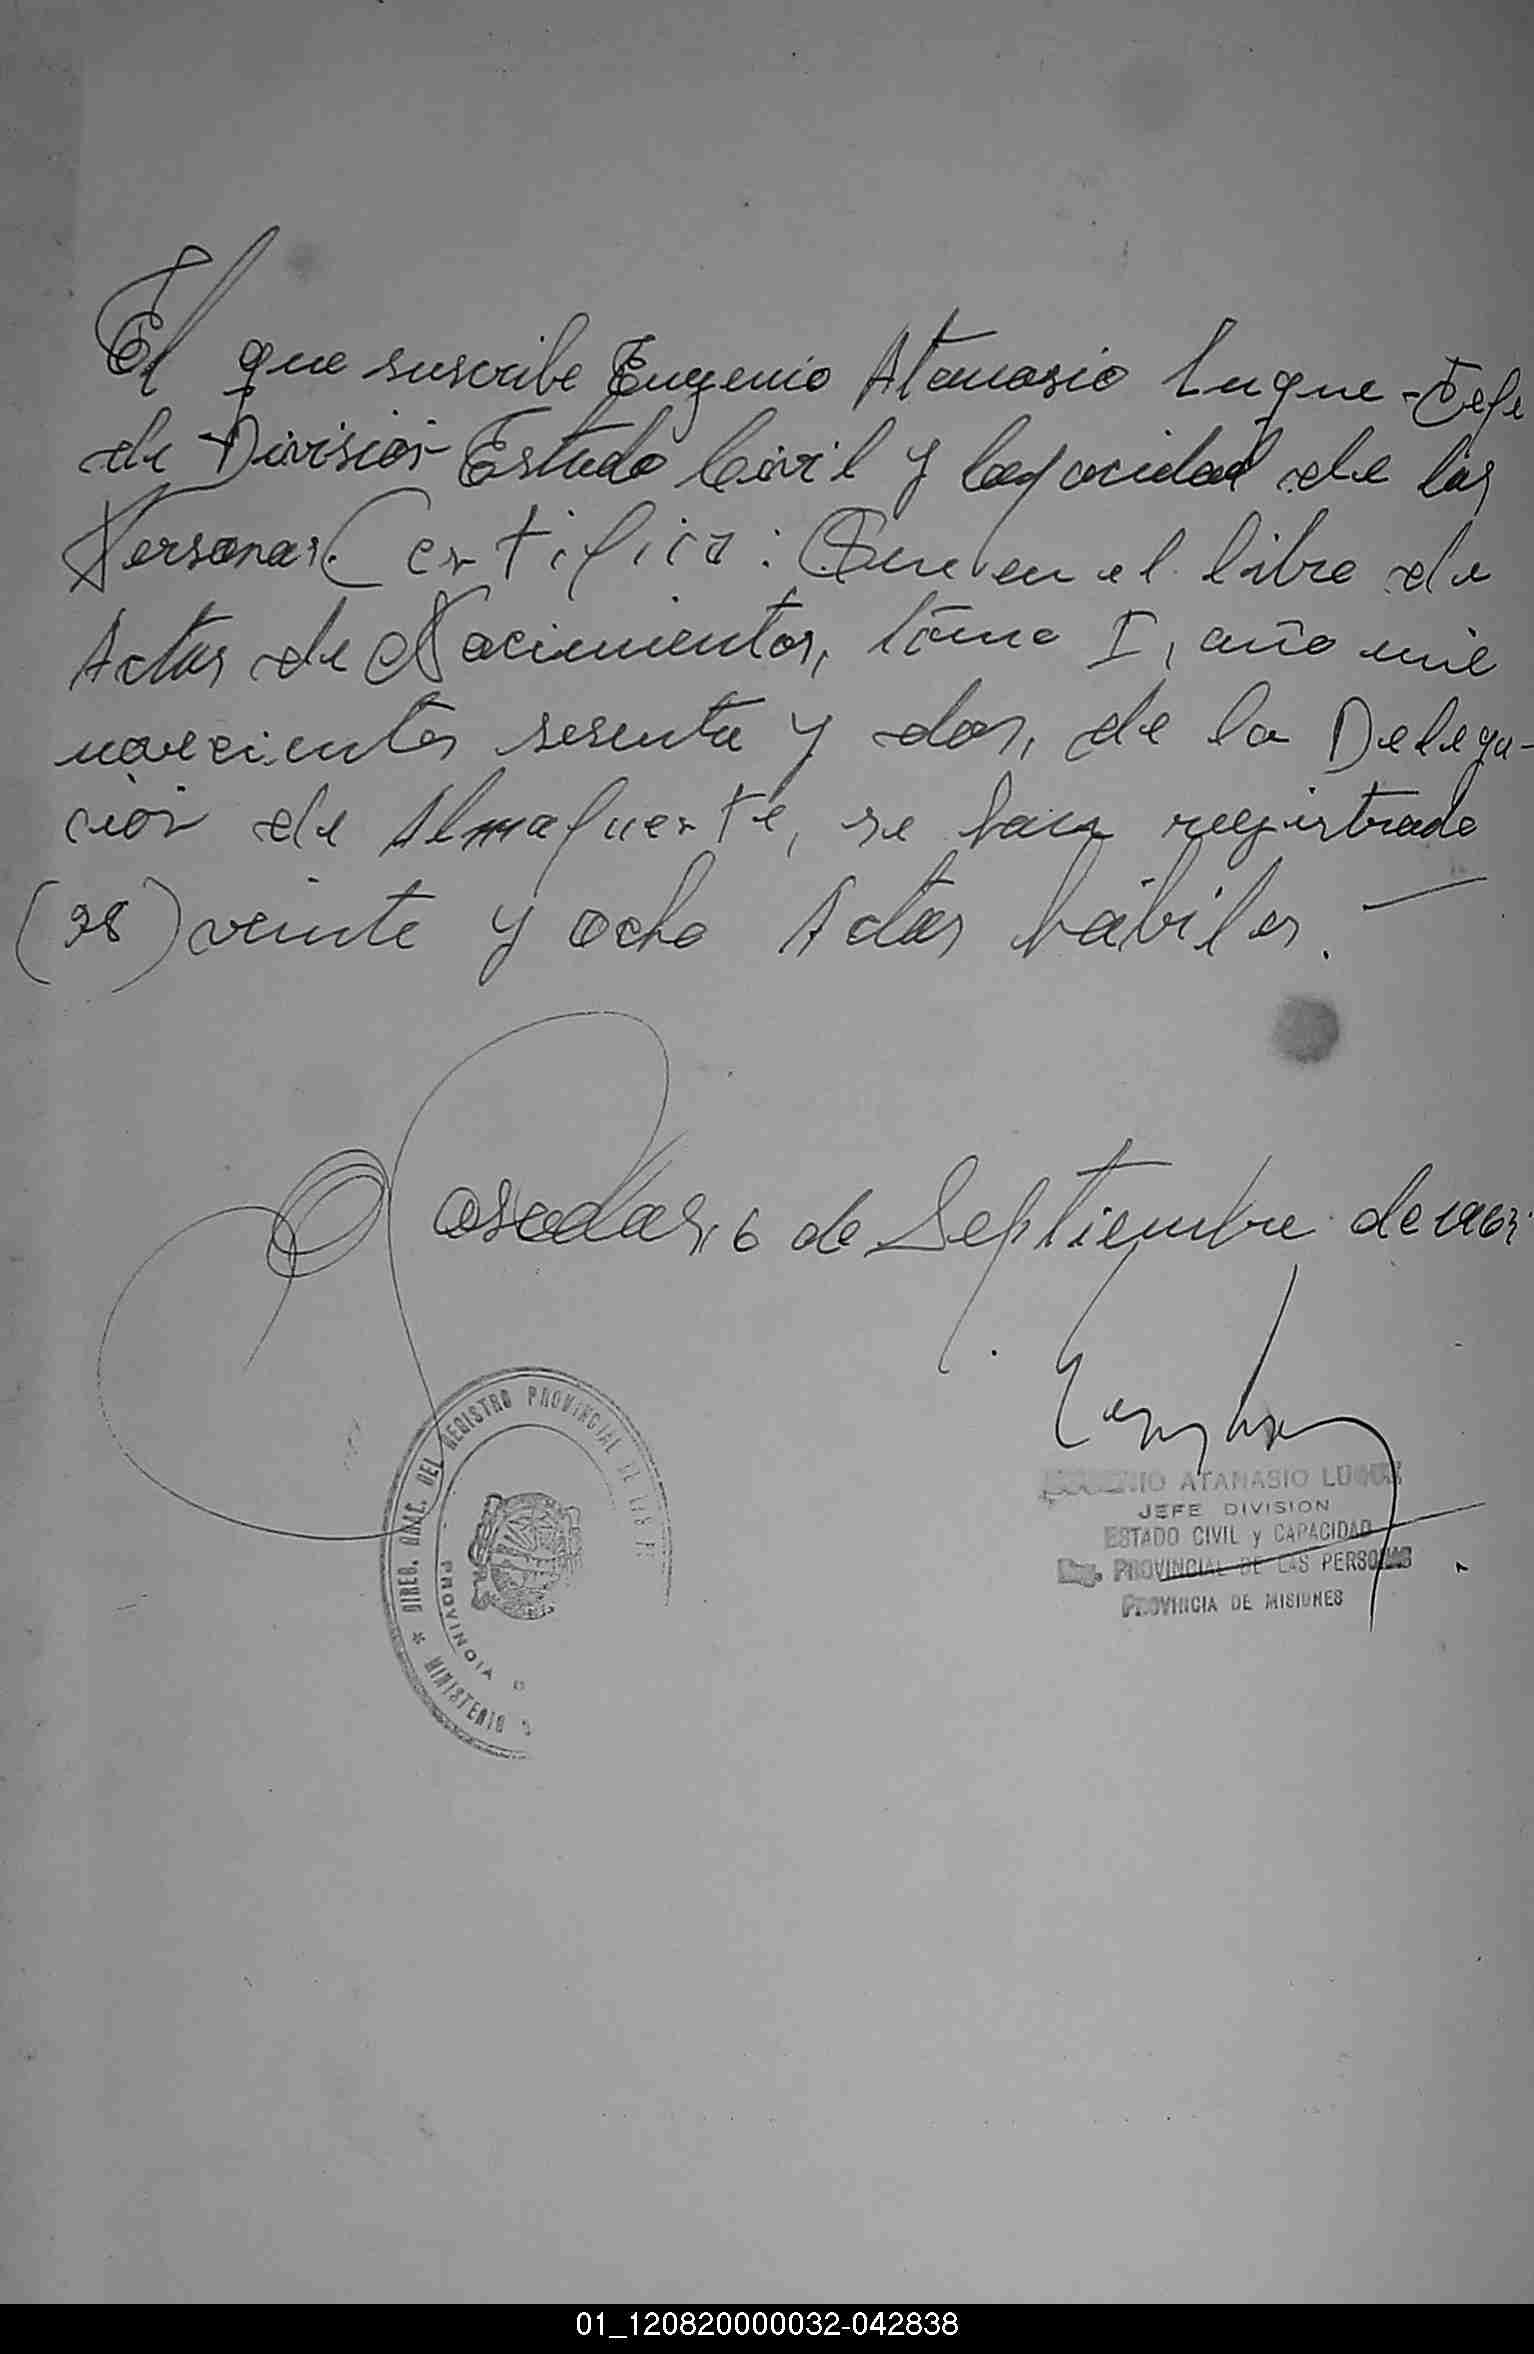 El que suscribe Eugenio Atanasio Luque - Jefe
de División Estado Civil y Capacidad de las
Personas. Certifica: Que en el libro de
Actas de Nacimientos, tomo I, año mil
novecientos sesenta y dos, de la Delega-
ción de Almafuerte, se han registrado
(28) veinte y ocho Actas hábiles. —
Posadas, 6 de Septiembre de 1963.
EUGENIO ATANASIO LUQUE
JEFE DIVISION
ESTADO CIVIL y CAPACIDAD
Reg. PROVINCIAL DE LAS PERSONAS
PROVINCIA DE MISIONES
* DIREC. GRAL. DEL REGISTRO PROVINCIAL DE LAS
PROVINCIA
MINISTERIO
01_120820000032-042838